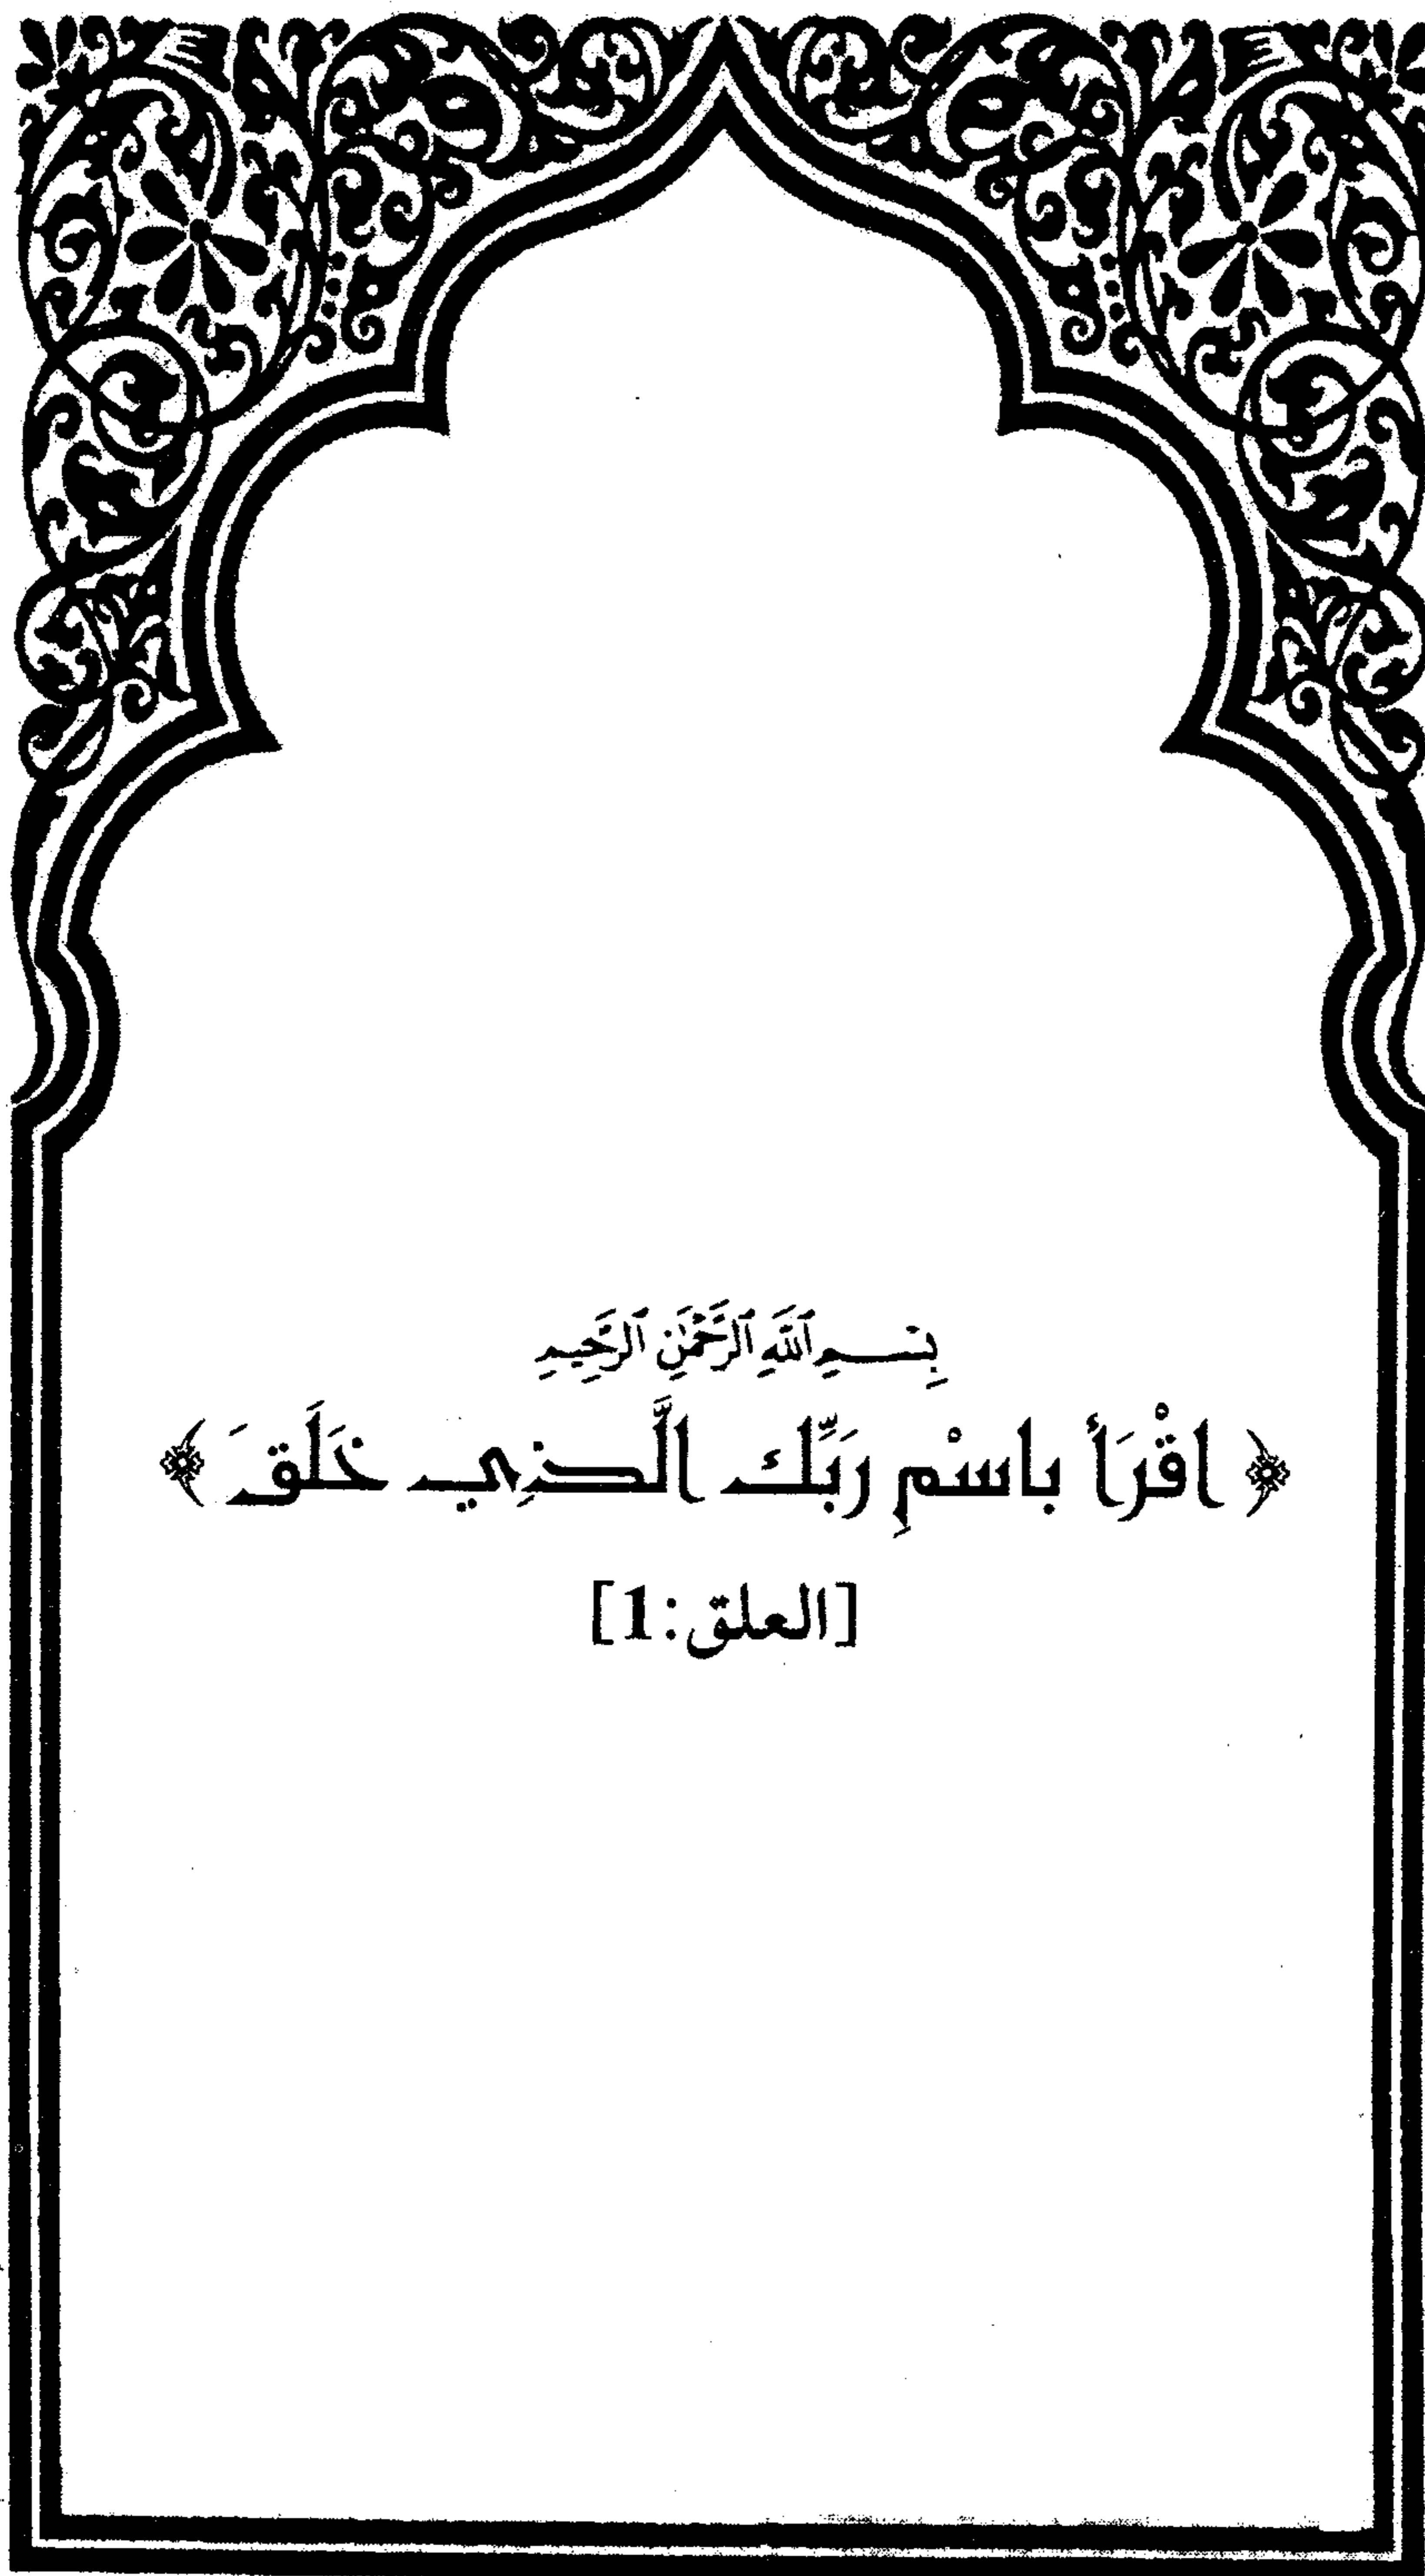 بِسْمِ ٱللَّهِ ٱلرَّحْمَٰنِ ٱلرَّحِيمِ
﴿ اقْرَأ باسْمِ رَبِّك الَّذِي خَلَقَ ﴾
[العلق:1]